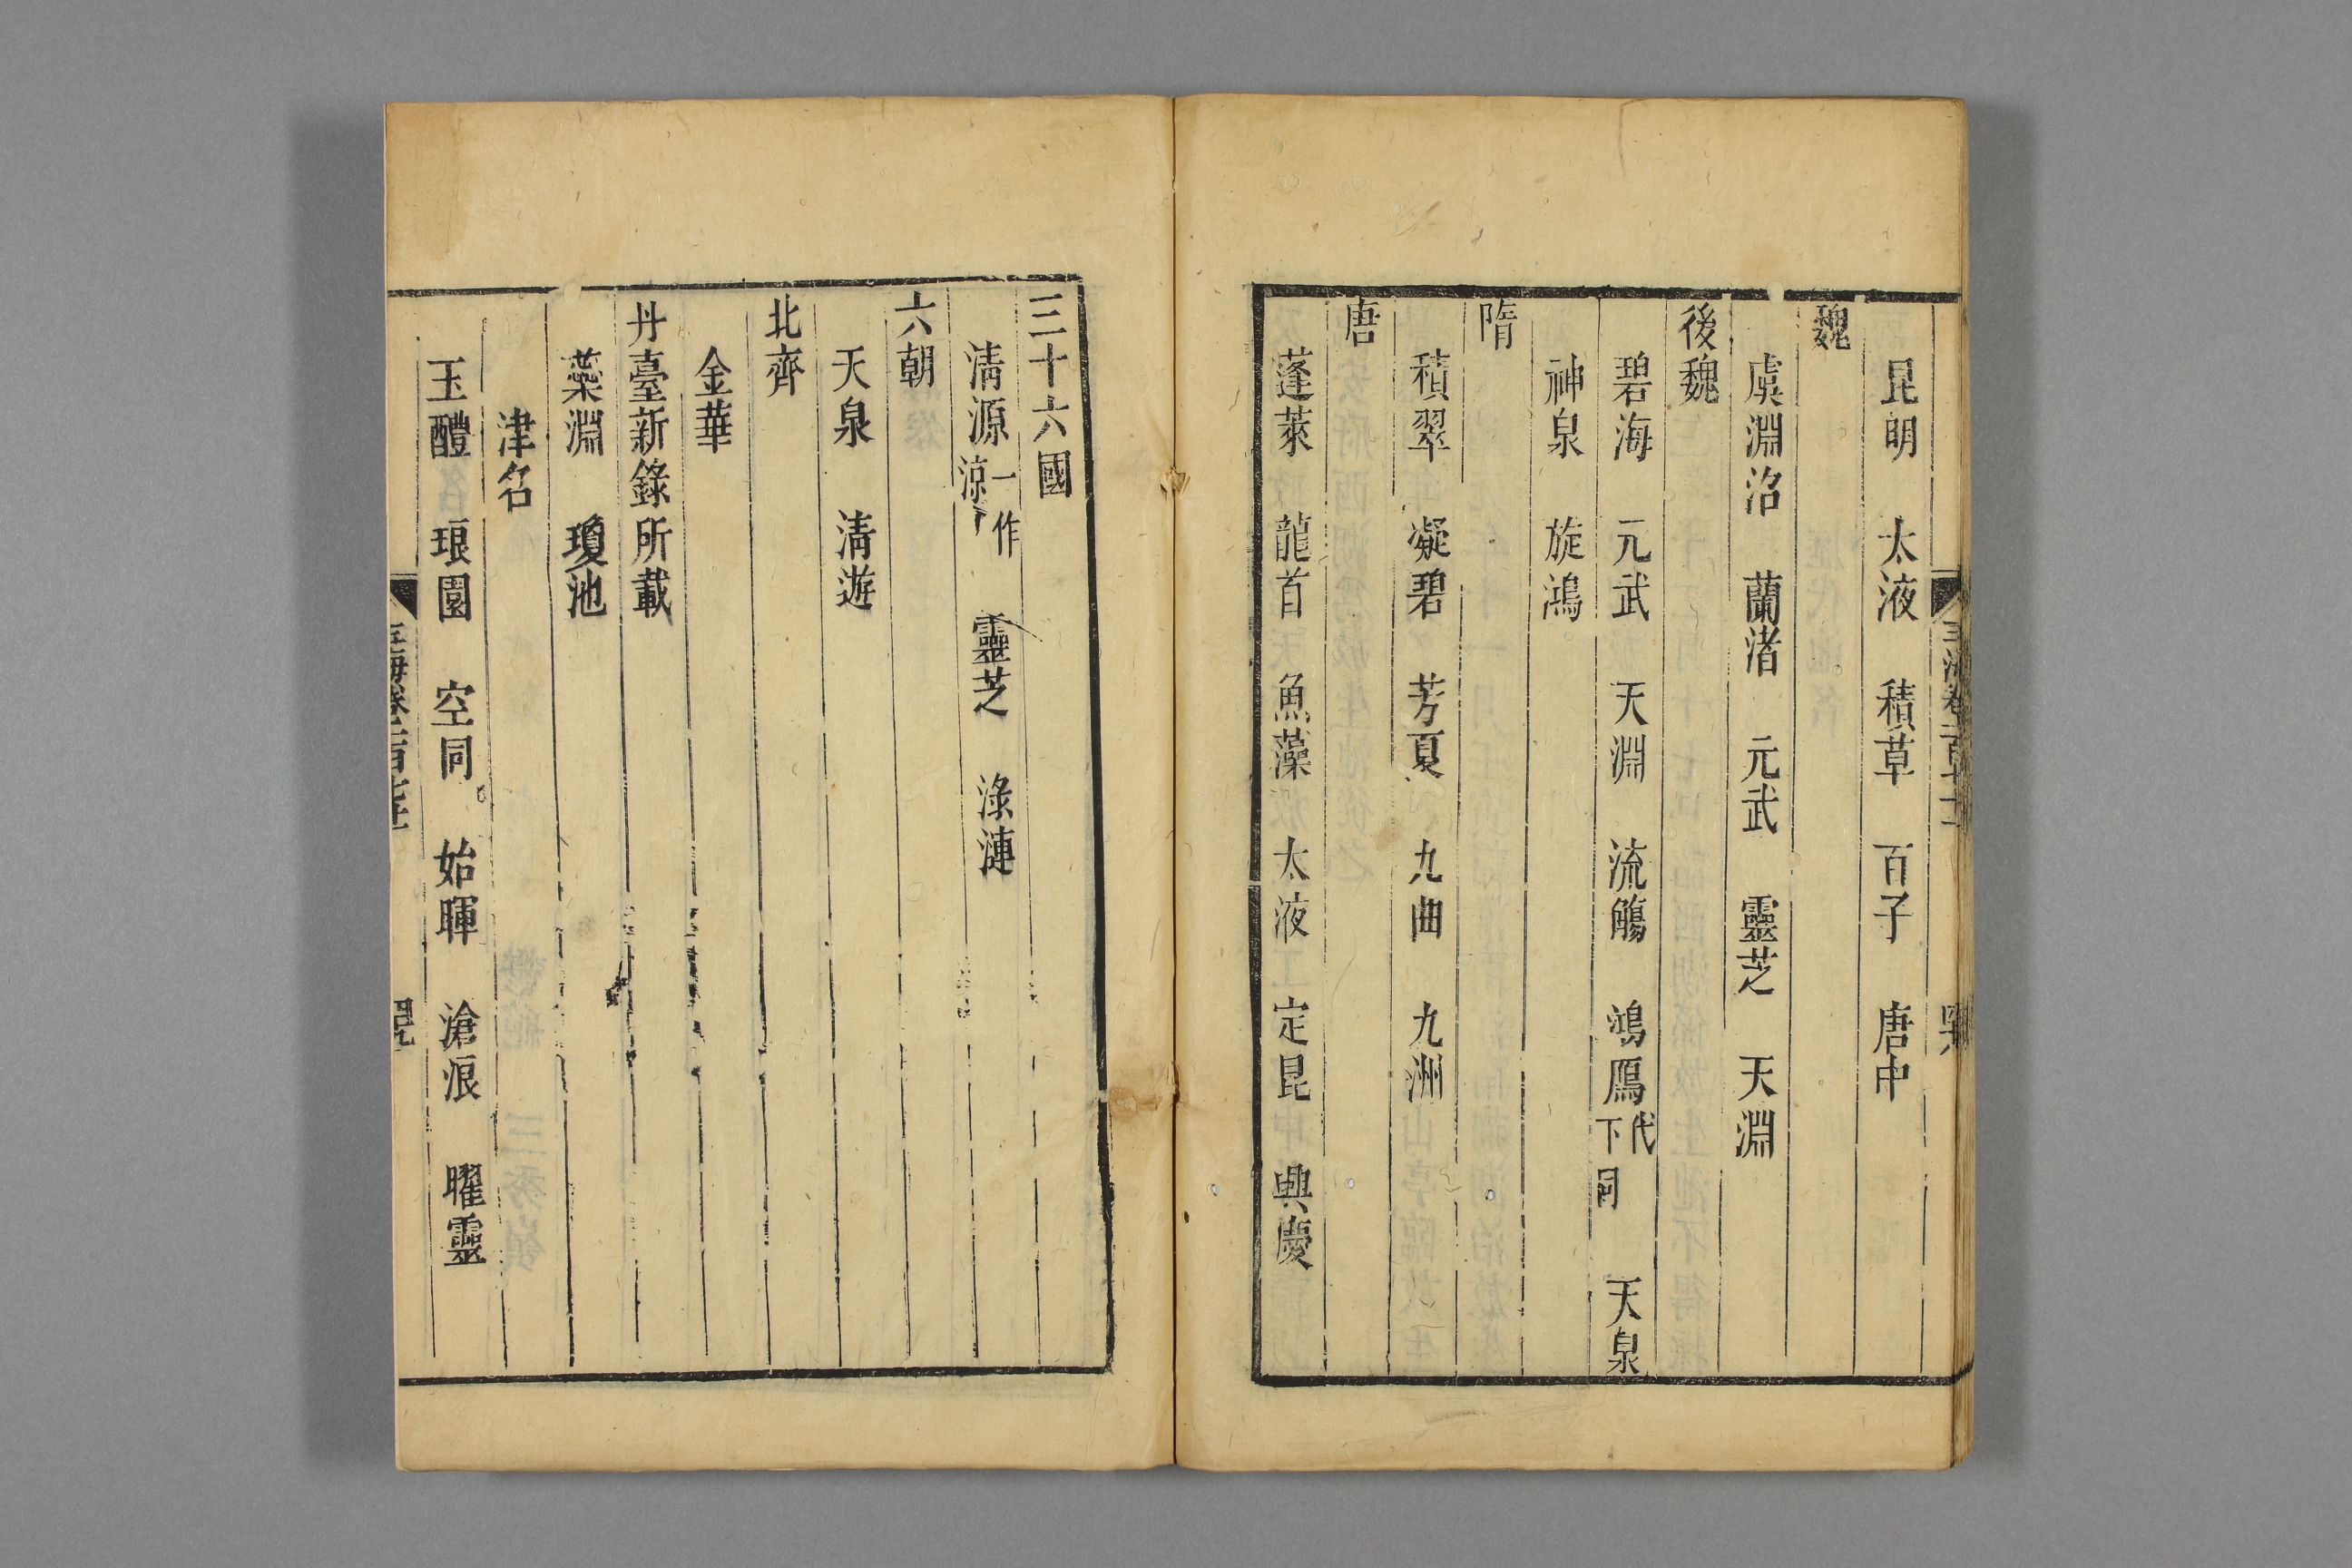 昆明　太液　積草　百子　唐中
魏
虞淵沼　蘭渚　元武　靈芝　天淵
後魏
碧海　元武　天淵　流觴　鴻鴈代下同　天泉
神泉　旋鴻
隋
積翠　凝碧　芳夏　九曲　九洲
唐
蓬萊　龍首　魚藻　太液　定昆　興慶
三十六國
清源一作涼　靈芝　淥漣
六朝
天泉　清遊
北齊
金華
丹臺新錄所載
蘂淵　瓊池
津名
玉醴　琅園　空同　始暉　滄浪　曜靈